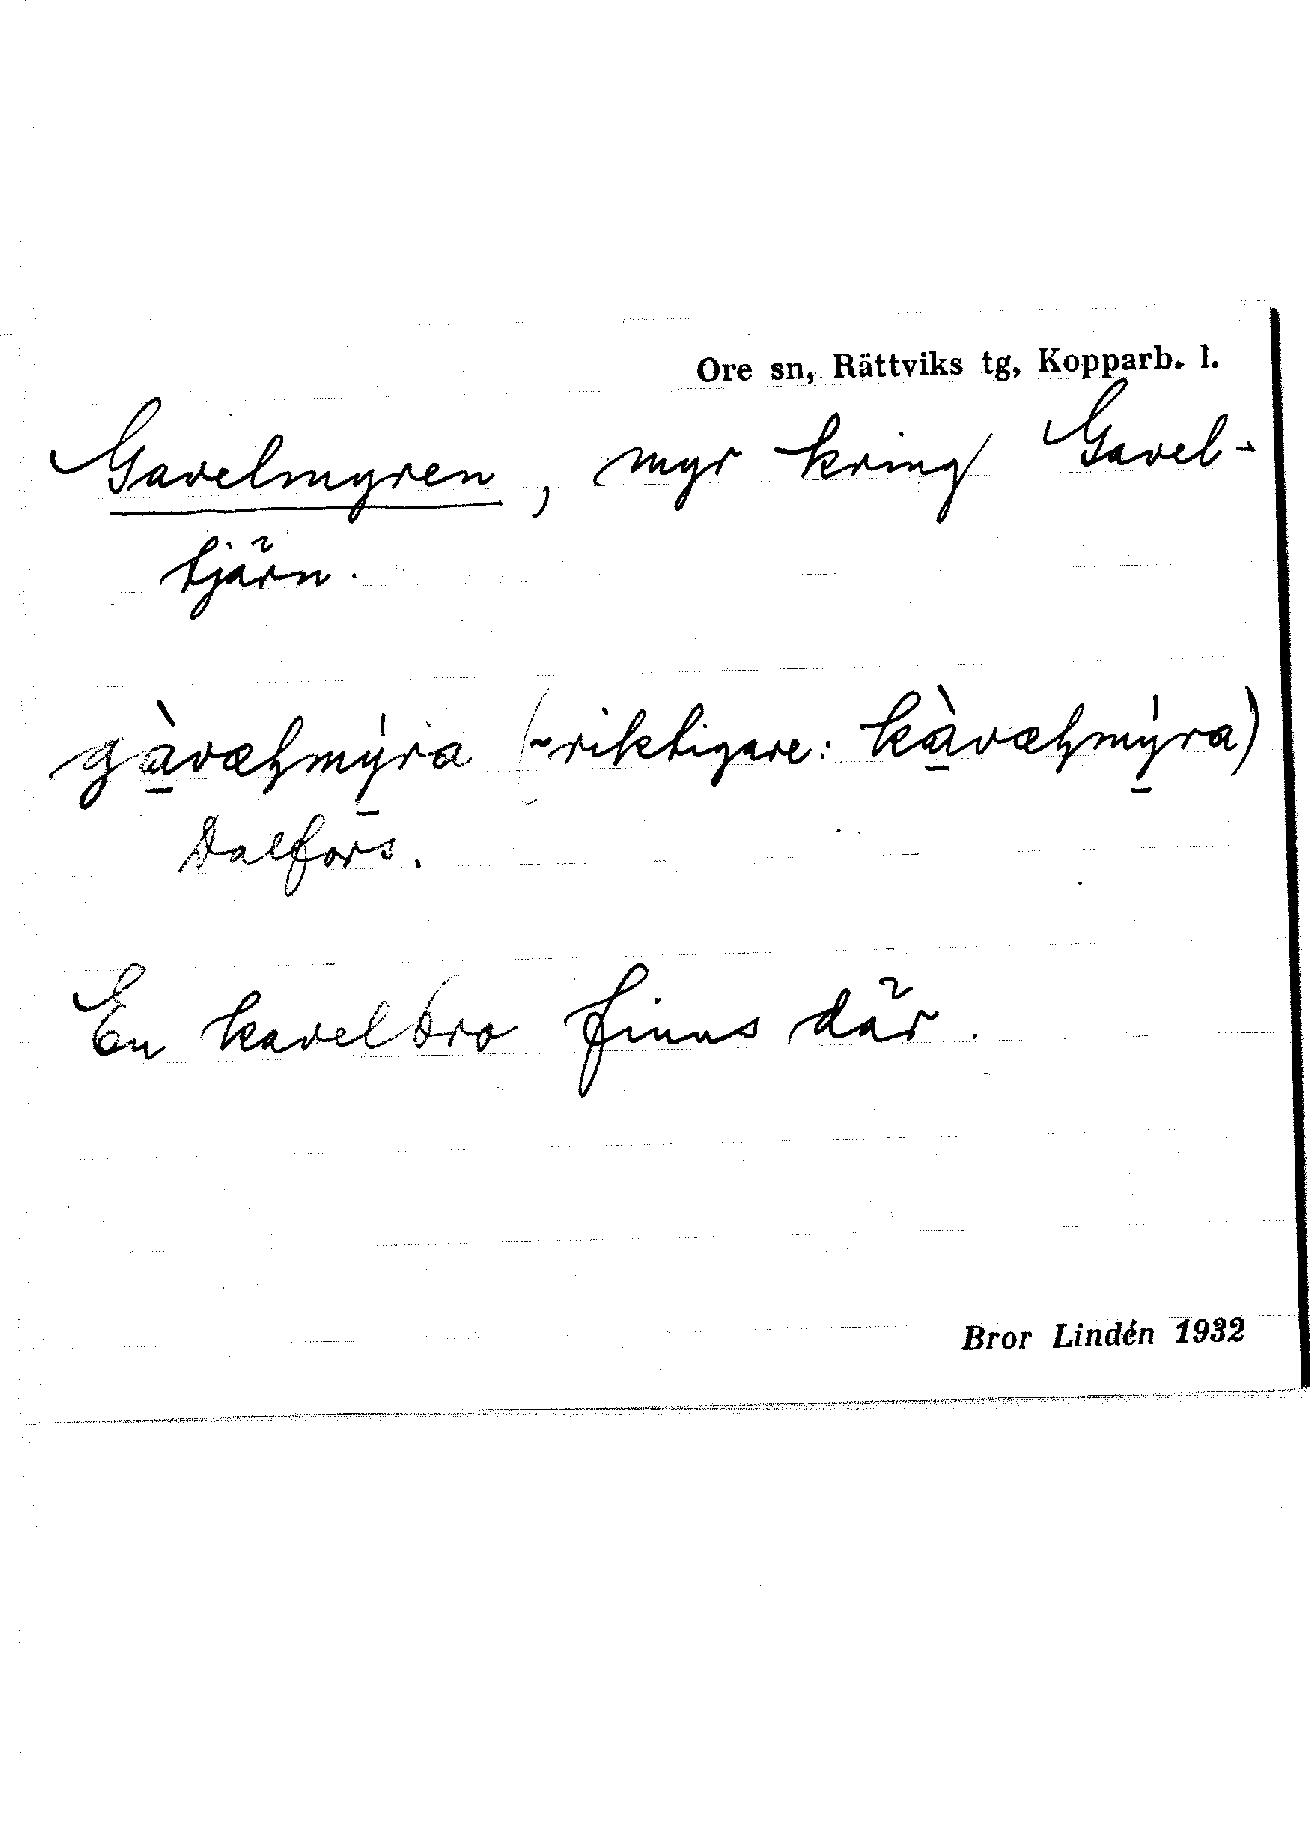 Ore sn, Rättviks tg, Kopparb. l.
Gavelmyren, myr kring Gavel-
tjärn.
gàvæɫmy̍ra (~riktigare: kàvæɫmy̍ra)
Dalfors.
En kavelbro finns där.
Bror Lindén 1932